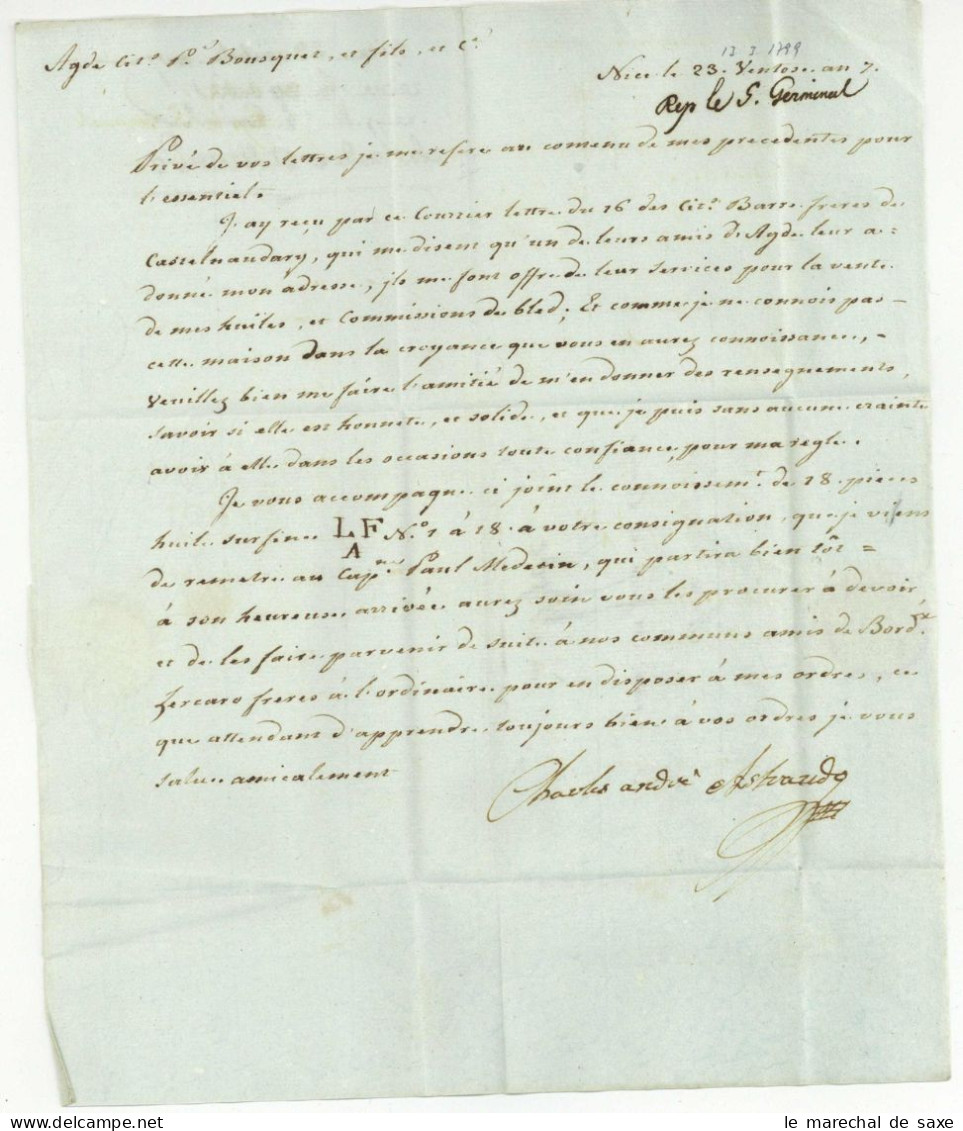 13 3 1799
Agde Cit.ⁿ P.re Bousquet, et fils, et C.e
Nice le 23. Ventose an 7.
Rep le 5. Germinal
Privé de vos lettres je me refere au contenu de mes precedentes pour
l'essentiel.
J'ay reçu par ce Courrier lettre du 16 des Cit.ⁿ Barre freres de
Castelnaudary, qui me disent qu'un de leurs amis d'Agde leur a =
donné mon adresse, jls me font offre de leur services pour la vente
de mes huiles, et Commissions du bled; Et comme je ne connois pas —
cette maison dans la croyance que vous en aurez connoissance, —
Veuillez bien me faire l'amitié de m'en donner des rensegnements,
savoir si elle est honnete, et solide, et que je puis sans aucune crainte
avoir à elle dans les occasions toute confiance, pour ma regle.
Je vous accompagne ci joint le connoissem.t de 18. pièces
huile surfine LF A N.o 1 à 18. à votre consignation, que je viens
de remetre au Cap.ne Paul Medecin, qui partira bien tôt =
à son heureuse arrivée aurez soin vous les procurer à devoir
et de les faire parvenir de suite à nos communs amis de Bord.x
freres à l'ordinaire pour en disposer à mes ordres, ce
que attendant d'apprendre, toujours bien à vos ordres je vous
salue amicalement
Charles andré Astraudo
le marechal de saxe